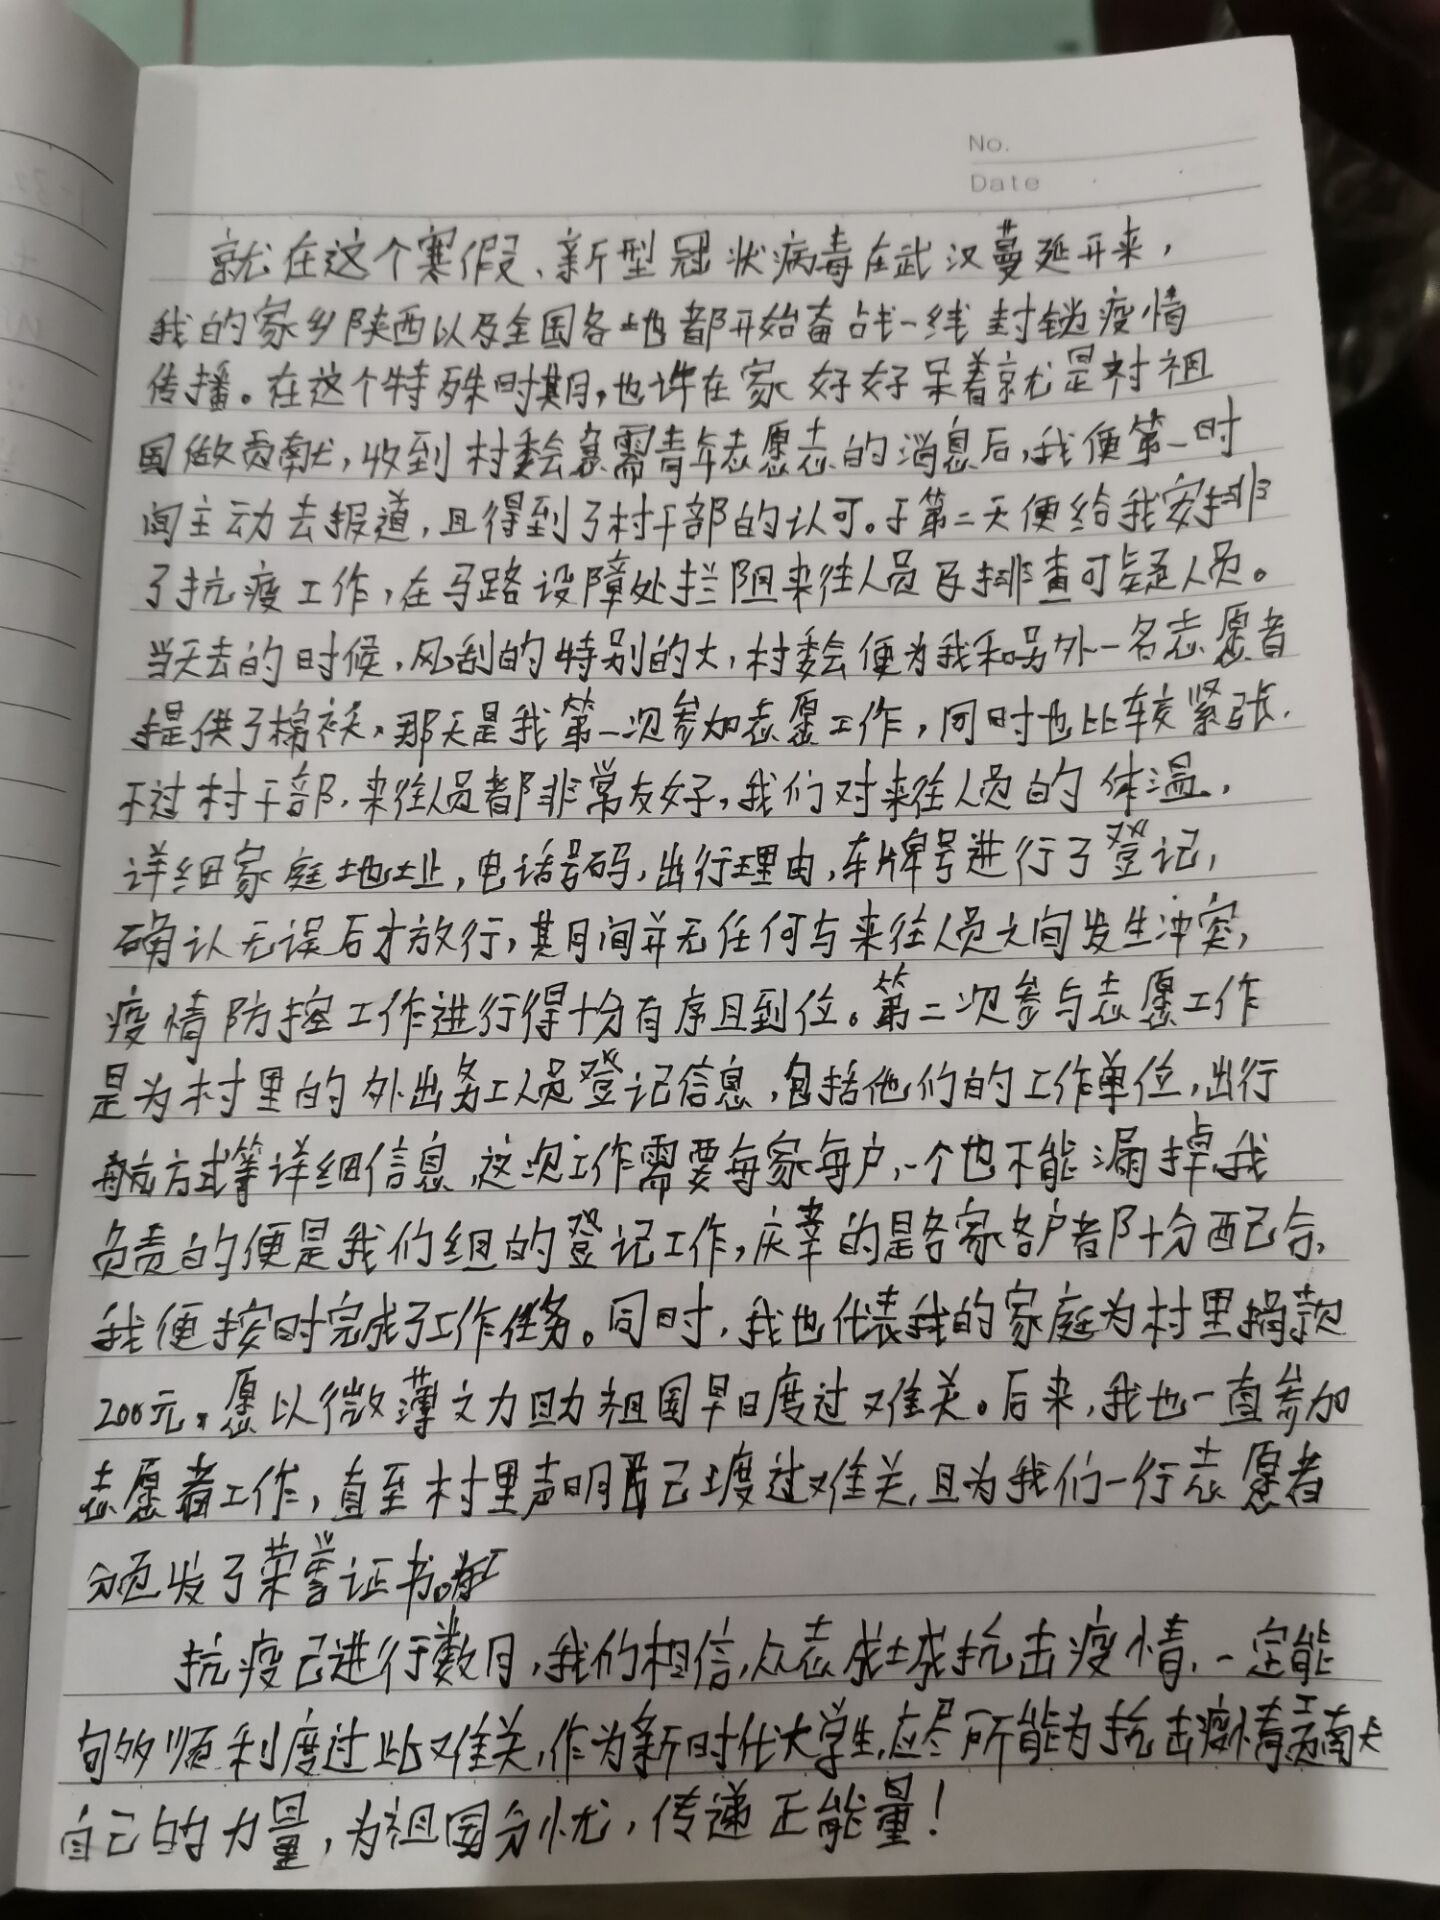 No.
Date
就在这个寒假、新型冠状病毒在武汉蔓延开来，
我的家乡陕西以及全国各地都开始奋战一线封锁疫情
传播。在这个特殊时期，也许在家好好呆着就是对祖
国做贡献，收到村委会急需青年志愿志的消息后，我便第一时
间主动去报道，且得到了村干部的认可。于第二天便给我安排
了抗疫工作，在马路设障处拦阻来往人员及排查可疑人员。
当天去的时候，风刮的特别的大，村委会便为我和另外一名志愿者
提供了棉袄，那天是我第一次参加志愿工作，同时也比较紧张.
不过村干部，来往人员都非常友好，我们对来往人员的体温，
详细家庭地址，电话号码，出行理由，车牌号进行了登记，
确认无误后才放行，其月间并无任何与来往人员之间发生冲突，
疫情防控工作进行得十分有序且到位。第二次参与志愿工作
是为村里的外出务工人员登记信息，包括他们的工作单位，出行
方式等详细信息，这次工作需要每家每户，一个也不能漏掉，我
负责的便是我们组的登记工作，庆幸的是各家各户都十分配合，
我便按时完成了工作任务。同时，我也代表我的家庭为村里捐款
200元，愿以微薄之力助祖国早日度过难关。后来，我也一直参加
志愿者工作，直至村里声明已度过难关，且为我们一行志愿者
分颁发了荣誉证书。
抗疫已进行数月，我的相信，众志成城抗击疫情，一定能
句多顺利度过此难关，作为新时代大学生，应尽所能为抗击疫情贡献
自己的力量，为祖国分忧，传递正能量！